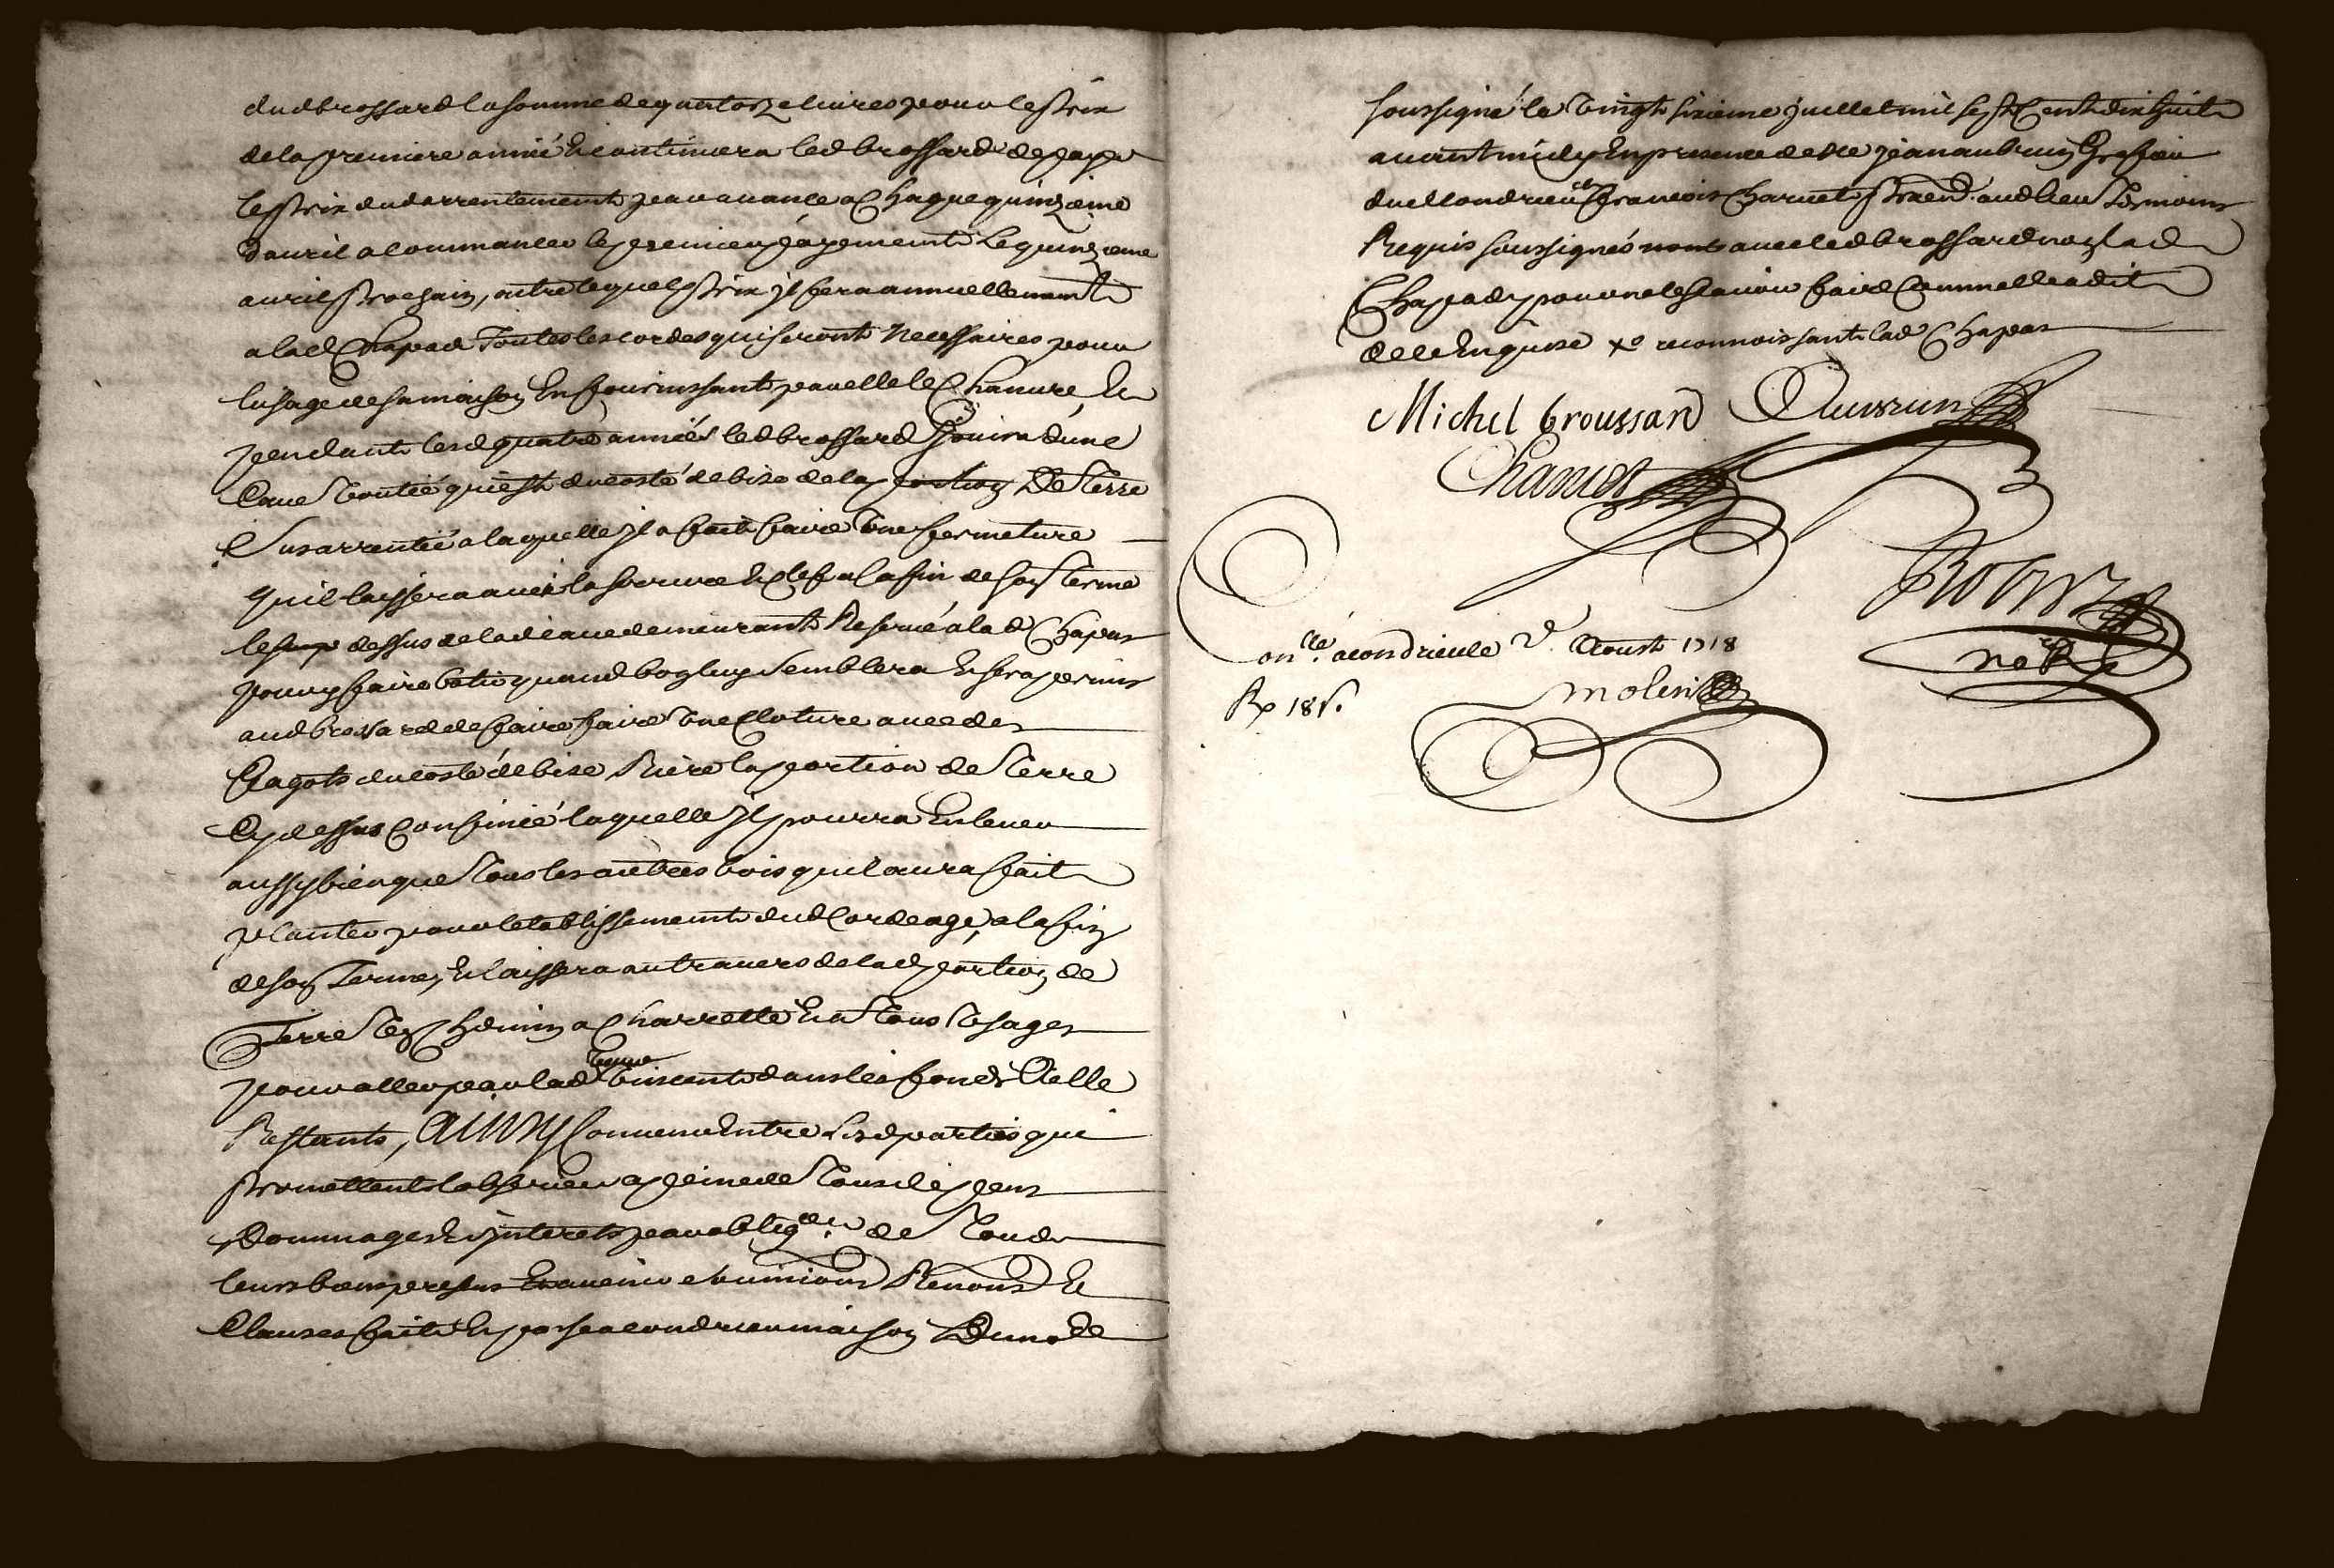 dud brossard la somme de quatorze livres pour le prix
de la premiere année Et continuera led brossard de payer
le prix dud arrentement par avance a Chaque quinzieme
d'avril a commancer le premier payement Le quinzieme
avril prochain, outre lequel prix jl fera annuellement
a lad Chapad Toutes les cordes qui seront Necessaires pour
lusage de sa maison En fournissant par elle le Chanvre, Et
pendant lesd quatre années led brossard Jouira dune
Cave voutée qui est du costé de bize de la portion De Terre
Susarrentée a laquelle jl a fait faire Une fermeture
quil laissera avec la serrure Et clef a la fin de son Terme
le dessus de lad cave demeurant Reservé a lad Chapas
pour y faire batir quand bon luy Semblera Et sera permis
aud brossard de faire faire Une Cloture avec des
fagots du costé de bize Riere la portion de Terre
Cy dessus Confinée laquelle jl pourra Enlever
aussy bien que Tous les autres bois quil aura fait
planter pour letablissement dud Cordeage, a la fin
de son Terme, Et laissera au travers de lad portion de
Terre Un Chemin a Charrette Et a Tous Usages
pour aller par lad veuve vincent dans les fonds A elle
Restants, AINSY Convenu Entre Lesd parties qui
promettent lobserver a peine de Tous depens
Dommages Et jnterets par obligon. de Tous
leurs biens presens Et avenir soumissions Renons Et
Clauses fait Et passé a condrieu maison Du no.re
soussigné le Vingt sixieme juillet mil sept Cent dix huit
avant midy En presence de Me jean aubrun Greffier
dud Condrieu et francois Charvet praen aud lieu Tesmoins
Requis soussignés avec led brossard non lad
Chapad pour ne le scavoir faire Comme elle a dit
de ce Enquise Xo reconnoissant lad Chapas
Michel broussard Aubrun
Charvet
Robin
no.re
Con.llé a condrieu le 2e. Aoust 1718
R. 18 s.
Molin